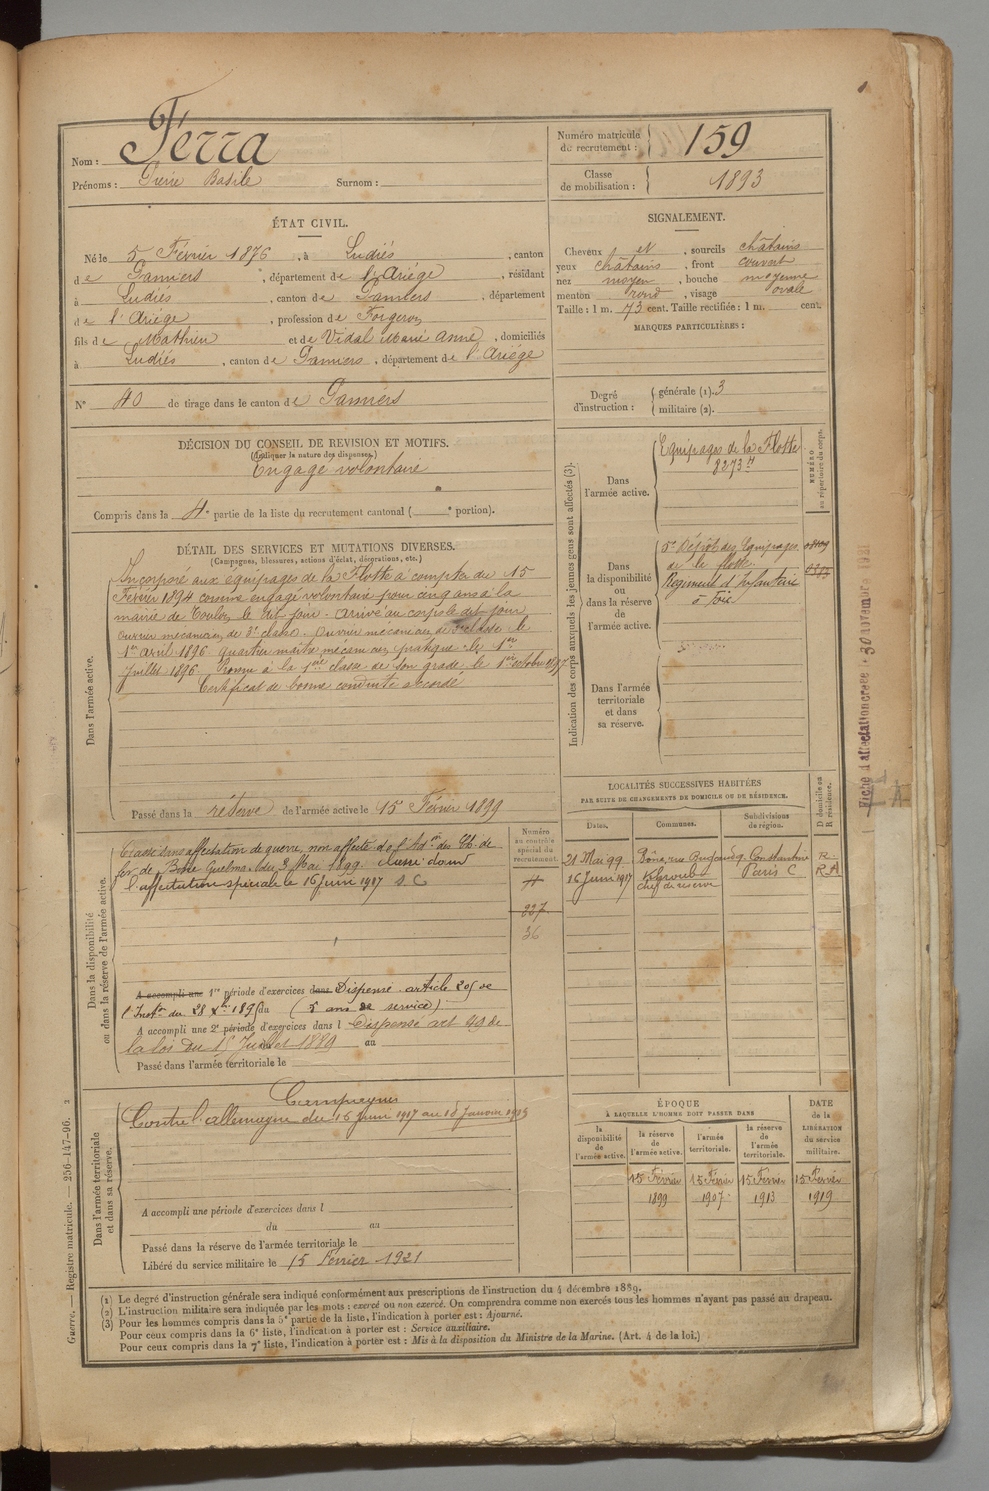 Nom : Ferra
Prénoms : Pierre Basile Surnom :
Numéro matricule de recrutement : 159
Classe de mobilisation : 1893
ÉTAT CIVIL.
Né le 5 Février 1876, à Ludiés, canton
de Pamiers, département de l'Ariége, résidant
à Ludiés, canton de Pamiers, département
de l'Ariége, profession de Forgeron
fils de Mathieu et de Vidal Marie Anne, domiciliés
à Ludiés, canton de Pamiers, département de l'Ariége
N° 40 de tirage dans le canton de Pamiers
SIGNALEMENT.
Cheveux et, sourcils châtains
yeux châtains, front couvert
nez moyen, bouche moyenne
menton rond, visage ovale
Taille : 1 m. 73 cent. Taille rectifiée : 1 m. cent.
MARQUES PARTICULIÈRES :
Degré d'instruction : générale (1). 3
militaire (2).
DÉCISION DU CONSEIL DE REVISION ET MOTIFS.
(Indiquer la nature des dispenses.)
Engagé volontaire
Compris dans la 4e partie de la liste du recrutement cantonal ( e portion).
DÉTAIL DES SERVICES ET MUTATIONS DIVERSES.
(Campagnes, blessures, actions d'éclat, décorations, etc.)
Dans l'armée active.
Incorporé aux équipages de la Flotte à compter du 15
Février 1894 comme engagé volontaire pour cinq ans à la
mairie de Toulon le dit jour. Arrivé au corps le dit jour
ouvrier mécanicien de 3e classe. Ouvrier mécanicien de classe le
1er avril 1896 quartier maître mécanicien pratique le 1er
Juillet 1896. Promu à la 1ère classe de son grade le 1er octobre 1897
Certificat de bonne conduite accordé
Passé dans la réserve de l'armée active le 15 Février 1899
Indication des corps auxquels les jeunes gens sont affectés (3).
NUMÉRO au répertoire du corps.
Dans l'armée active.
Equipages de la Flotte
8273
Dans la disponibilité ou dans la réserve de l'armée active.
5e Dépôt des Equipages
de la flotte
Régiment d'Infanterie
à Foix
Dans l'armée territoriale et dans sa réserve.
LOCALITÉS SUCCESSIVES HABITÉES
PAR SUITE DE CHANGEMENTS DE DOMICILE OU DE RÉSIDENCE.
Dates. Communes. Subdivisions de région. D domicile ou R résidence.
21 Mai 99 Bône, rue Constantine R
16 Juin 1917 Khroub Paris C RA
chef de réserve
Numéro au contrôle spécial du recrutement.
227
36
Dans la disponibilité ou dans la réserve de l'armée active.
Classé sans affectation de guerre, non affecté de l'Adon des Ch. de
fer de Bône Guelma (du 8 Mai 1899. classé dans
l'affectation spéciale le 16 Juin 1917 S.C
A accompli une 1re période d'exercices dans Dispensé article 205 de
l'Inston du 28 Xbre 1895 du (5 ans de service)
A accompli une 2e période d'exercices dans l Dispensé art 49 de
la loi du 15 Juillet 1889 au
Passé dans l'armée territoriale le
Dans l'armée territoriale et dans sa réserve.
Campagnes
Contre l'allemagne du 16 Juin 1917 au Janvier
A accompli une période d'exercices dans l
du au
Passé dans la réserve de l'armée territoriale le
Libéré du service militaire le 15 Février 1921
ÉPOQUE
À LAQUELLE L'HOMME DOIT PASSER DANS
DATE de la LIBÉRATION du service militaire.
la disponibilité de l'armée active. la réserve de l'armée active. l'armée territoriale. la réserve de l'armée territoriale.
15 Février 15 Février 15 Février 15 Février
1899 1907 1913 1919
(1) Le degré d'instruction générale sera indiqué conformément aux prescriptions de l'instruction du 4 décembre 1889.
(2) L'instruction militaire sera indiquée par les mots : exercé ou non exercé. On comprendra comme non exercés tous les hommes n'ayant pas passé au drapeau.
(3) Pour les hommes compris dans la 5e partie de la liste, l'indication à porter est : Ajourné.
Pour ceux compris dans la 6e liste, l'indication à porter est : Service auxiliaire.
Pour ceux compris dans la 7e liste, l'indication à porter est : Mis à la disposition du Ministre de la Marine. (Art. 4 de la loi.)
Guerre. — Registre matricule. — 256-147-96.
Fiche d'affectation créée le 30 novembre 1921